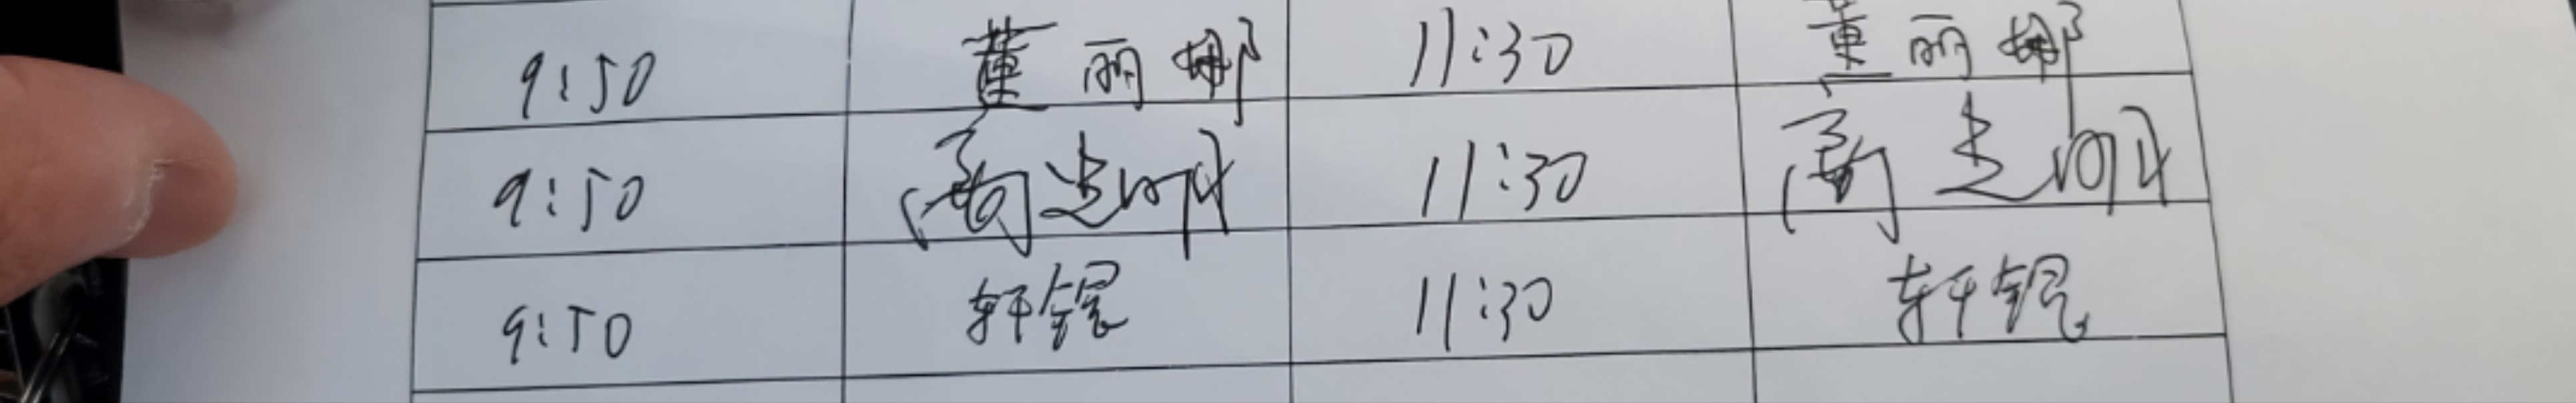 9:50 董丽娜 11:30 董丽娜
9:50 11:30
9:50 轩锟 11:30 轩锟